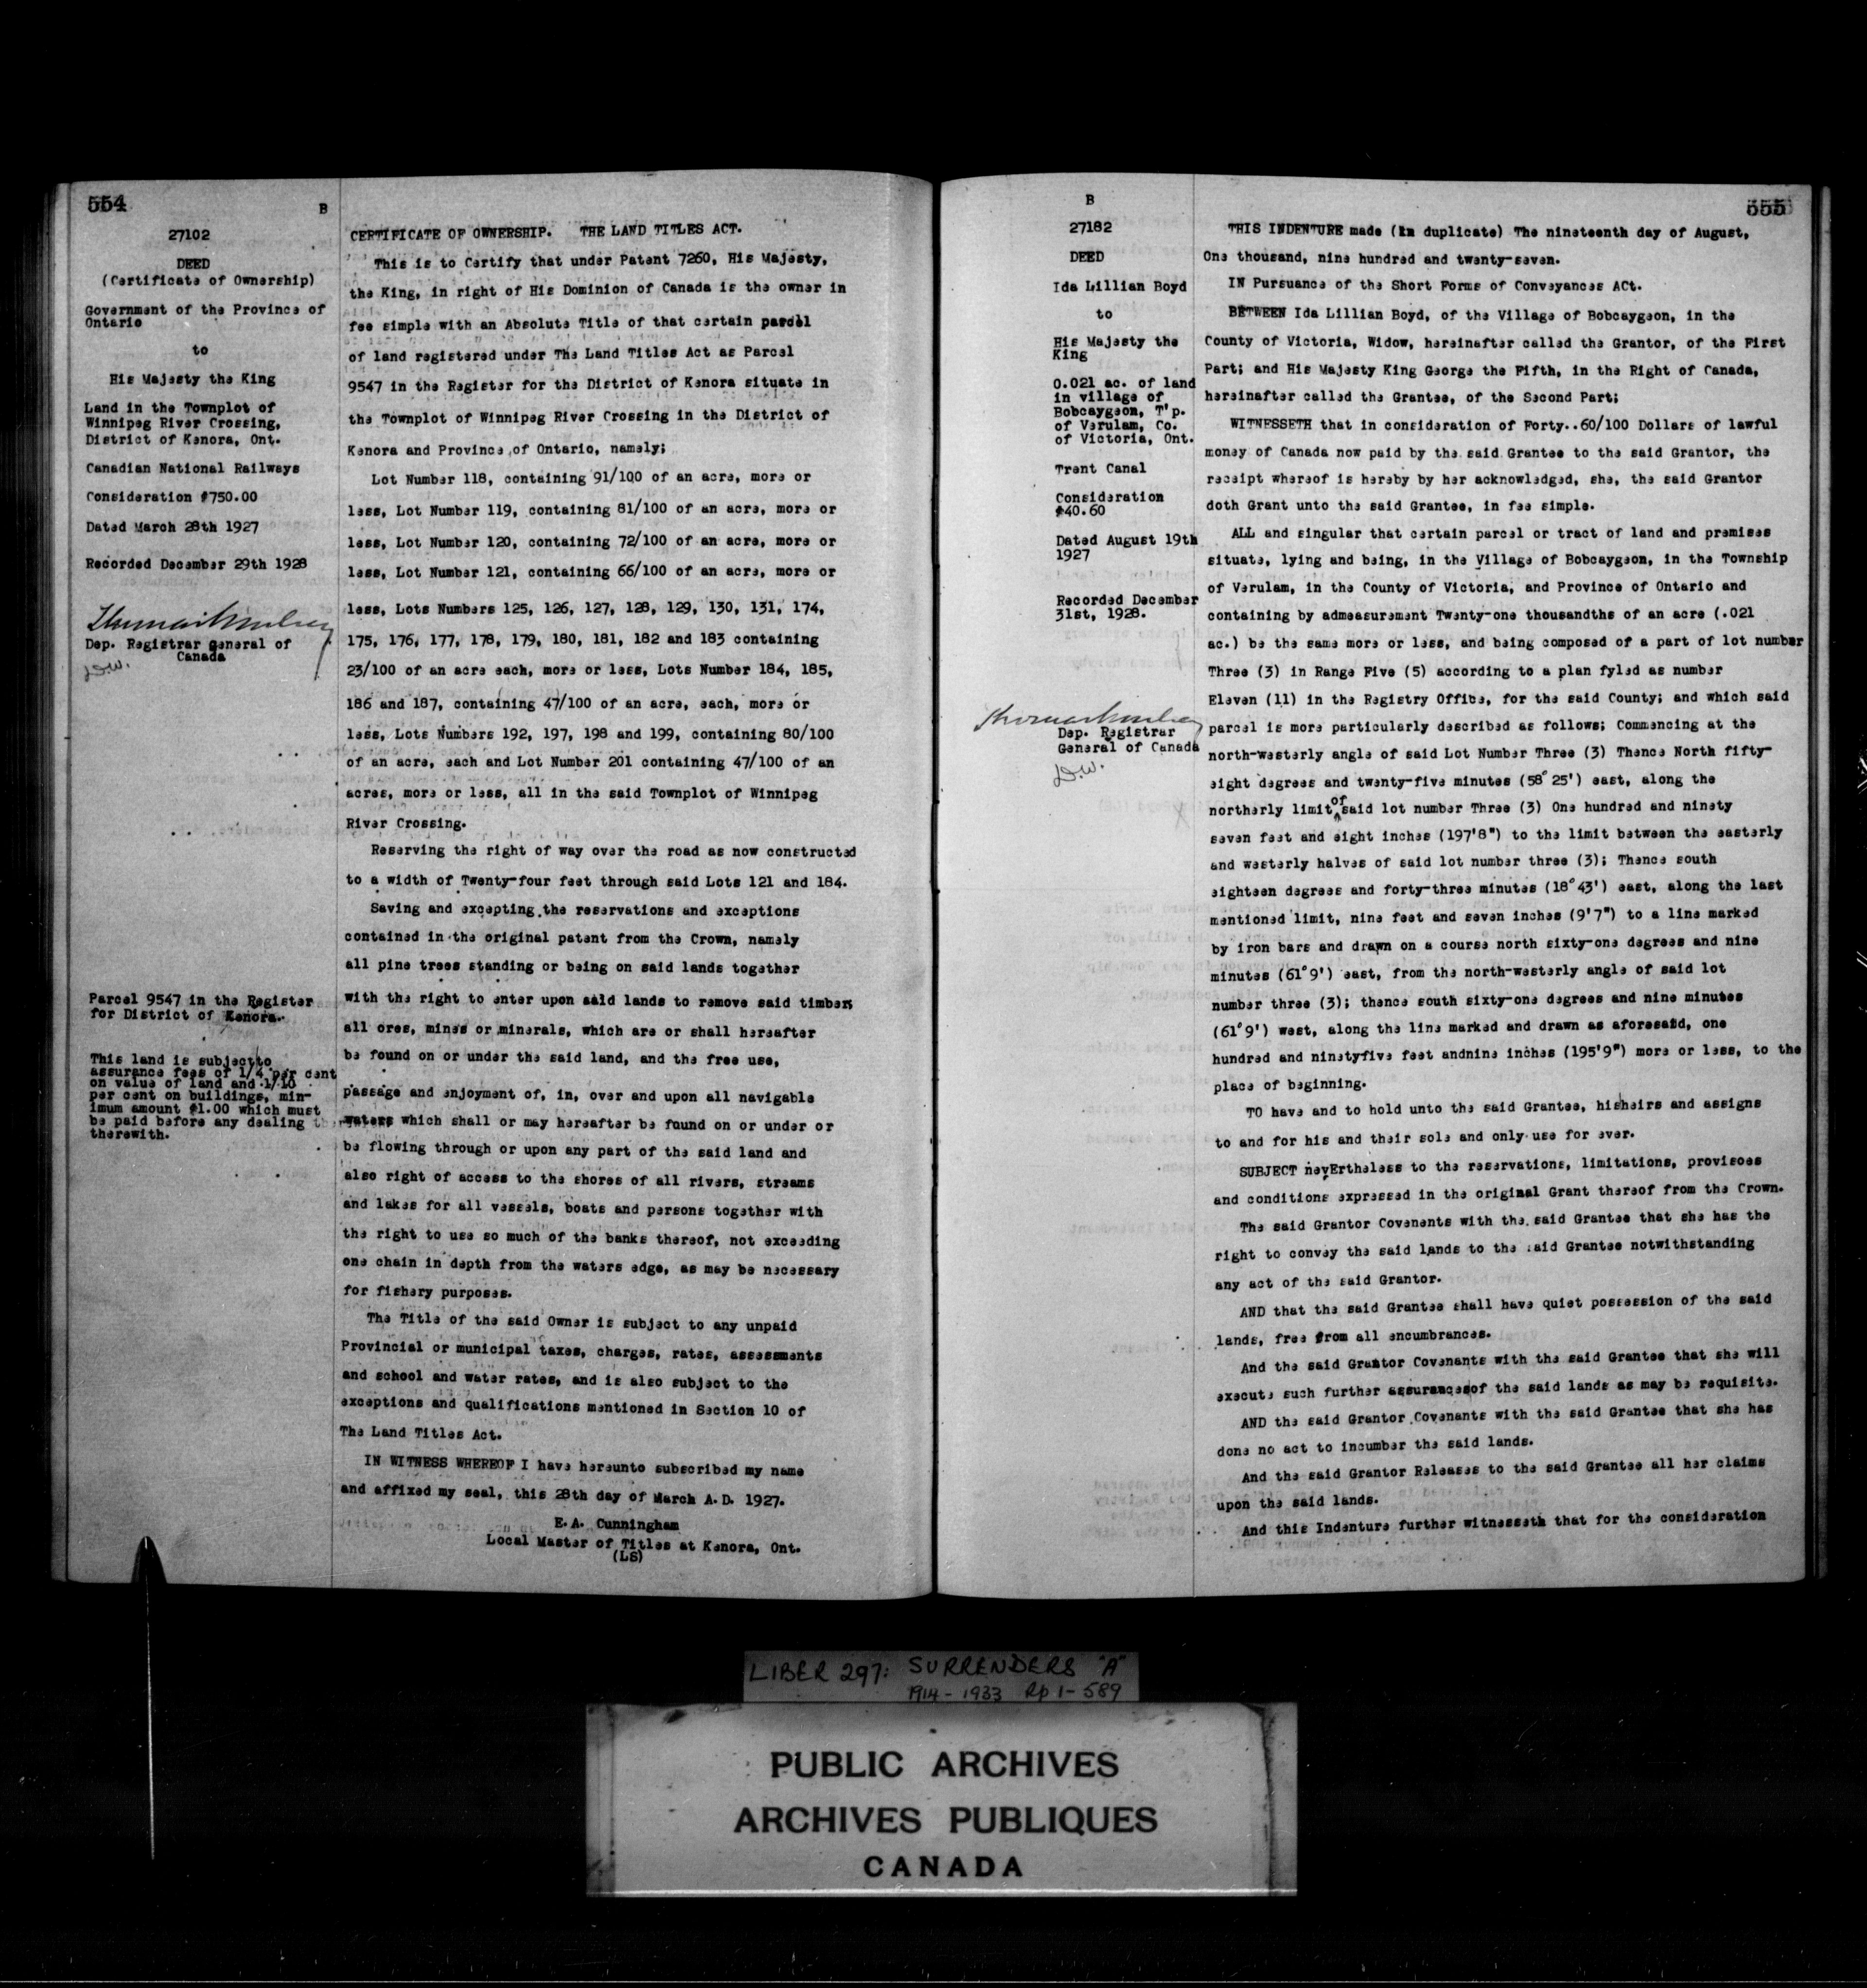 554
B
27102
DEED
(Certificate of Ownership)
Government of the Province of
Ontario
to
His Majesty the King
Land in the Townplot of
Winnipeg River Crossing,
District of Kenora, Ont.
Canadian National Railways
Consideration $750.00
Dated March 28th 1927
Recorded December 29th 1928
Dep. Registrar General of
Canada
Parcel 9547 in the Register
for District of Kenora.
This land is subject to
assurance fees of 1/4 per cent
on value of land and 1/10
per cent on buildings, min-
imum amount $1.00 which must
be paid before any dealing
therewith.
CERTIFICATE OF OWNERSHIP. THE LAND TITLES ACT.
This is to Certify that under Patent 7260, His Majesty,
the King, in right of His Dominion of Canada is the owner in
fee simple with an Absolute Title of that certain parcel
of land registered under The Land Titles Act as Parcel
9547 in the Register for the District of Kenora situate in
the Townplot of Winnipeg River Crossing in the District of
Kenora and Province of Ontario, namely;
Lot Number 118, containing 91/100 of an acre, more or
less, Lot Number 119, containing 81/100 of an acre, more or
less, Lot Number 120, containing 72/100 of an acre, more or
less, Lot Number 121, containing 66/100 of an acre, more or
less, Lots Numbers 125, 126, 127, 128, 129, 130, 131, 174,
175, 176, 177, 178, 179, 180, 181, 182 and 183 containing
23/100 of an acre each, more or less, Lots Number 184, 185,
186 and 187, containing 47/100 of an acre, each, more or
less, Lots Numbers 192, 197, 198 and 199, containing 80/100
of an acre, each and Lot Number 201 containing 47/100 of an
acres, more or less, all in the said Townplot of Winnipeg
River Crossing.
Reserving the right of way over the road as now constructed
to a width of Twenty-four feet through said Lots 121 and 184.
Saving and excepting the reservations and exceptions
contained in the original patent from the Crown, namely
all pine trees standing or being on said lands together
with the right to enter upon said lands to remove said timber;
all ores, mines or minerals, which are or shall hereafter
be found on or under the said land, and the free use,
passage and enjoyment of, in, over and upon all navigable
waters which shall or may hereafter be found on or under or
be flowing through or upon any part of the said land and
also right of access to the shores of all rivers, streams
and lakes for all vessels, boats and persons together with
the right to use so much of the banks thereof, not exceeding
one chain in depth from the waters edge, as may be necessary
for fishery purposes.
The Title of the said Owner is subject to any unpaid
Provincial or municipal taxes, charges, rates, assessments
and school and water rates, and is also subject to the
exceptions and qualifications mentioned in Section 10 of
The Land Titles Act.
IN WITNESS WHEREOF I have hereunto subscribed my name
and affixed my seal, this 28th day of March A.D. 1927.
E.A. Cunningham
Local Master of Titles at Kenora, Ont.
(LS)
B
555
27182
DEED
Ida Lillian Boyd
to
His Majesty the
King
0.021 ac. of land
in village of
Bobcaygeon, T'p.
of Verulam, Co.
of Victoria, Ont.
Trent Canal
Consideration
$40.60
Dated August 19th
1927
Recorded December
31st, 1928.
Dep. Registrar
General of Canada
THIS INDENTURE made (in duplicate) The nineteenth day of August,
One thousand, nine hundred and twenty-seven.
IN Pursuance of the Short Forms of Conveyances ACt.
BETWEEN Ida Lillian Boyd, of the Village of Bobcaygeon, in the
County of Victoria, Widow, hereinafter called the Grantor, of the First
Part; and His Majesty King George the Fifth, in the Right of Canada,
hereinafter called the Grantee, of the Second Part;
WITNESSETH that in consideration of Forty..60/100 Dollars of lawful
money of Canada now paid by the said Grantee to the said Grantor, the
receipt whereof is hereby by her acknowledged, she, the said Grantor
doth Grant unto the said Grantee, in fee simple.
ALL and singular that certain parcel or tract of land and premises
situate, lying and being, in the Village of Bobcaygeon, in the Township
of Verulam, in the County of Victoria, and Province of Ontario and
containing by admeasurement Twenty-one thousandths of an acre (.021
ac.) be the same more or less, and being composed of a part of lot number
Three (3) in Range Five (5) according to a plan fyled as number
Eleven (11) in the Registry Office, for the said County; and which said
parcel is more particularly described as follows; Commencing at the
north-westerly angle of said Lot Number Three (3) Thence North fifty-
eight degrees and twenty-five minutes (58°25') east, along the
northerly limit of said lot number Three (3) One hundred and ninety
seven feet and eight inches (197'8") to the limit between the easterly
and westerly halves of said lot number three (3); Thence south
eighteen degrees and forty-three minutes (18°43') east, along the last
mentioned limit, nine feet and seven inches (9'7") to a line marked
by iron bars and drawn on a course north sixty-one degrees and nine
minutes (61°9') east, from the north-westerly angle of said lot
number three (3); thence south sixty-one degrees and nine minutes
(61°9') west, along the line marked and drawn as aforesaid, one
hundred and ninetyfive feet andnine inches (195'9") more or less, to the
place of beginning.
TO have and to hold unto the said Grantee, hisheirs and assigns
to and for his and their sole and only use for ever.
SUBJECT nevErtheless to the reservations, limitations, provisoes
and conditions expressed in the original Grant thereof from the Crown.
The said Grantor Covenents with the said Grantee that she has the
right to convey the said lands to the said Grantee notwithstanding
any act of the said Grantor.
AND that the said Grantee shall have quiet possession of the said
lands, free from all encumbrances.
And the said Grantor Covenants with the said Grantee that she will
execute such further assurancesof the said lands as may be requisite.
AND the said Grantor Covenants with the said Grantee that she has
done no act to incumber the said lands.
And the said Grantor Releases to the said Grantee all her claims
upon the said lands.
And this Indenture further witnesseth that for the consideration
LIBER 297: SURRENDERS "A"
1914-1933 Rp 1-589
PUBLIC ARCHIVES
ARCHIVES PUBLIQUES
CANADA